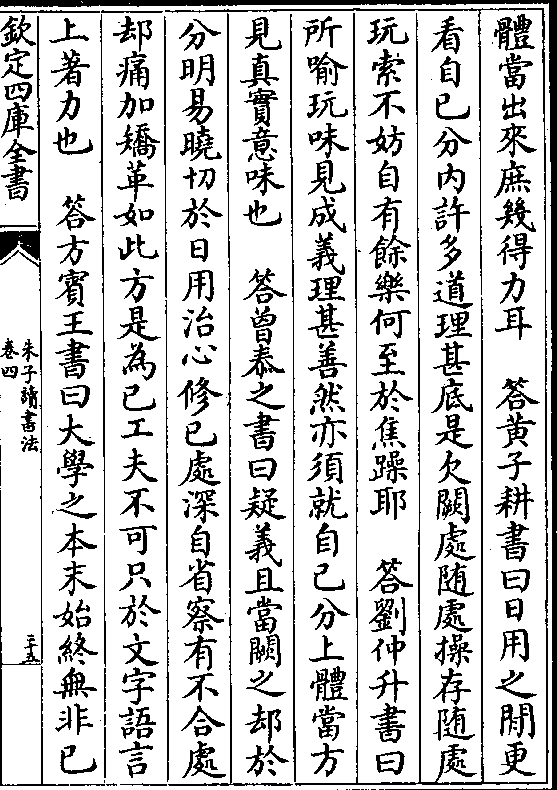 體當出來庶幾得力耳　答黃子耕書曰日用之閒更
看自已分內許多道理甚底是欠闕處隨處操存隨處
玩索不妨自有餘樂何至於焦躁耶　答劉仲升書曰
所喻玩味見成義理甚善然亦須就自已分上體當方
見真實意味也　答曾泰之書曰疑義且當闕之却於
分明易曉切於日用治心修已處深自省察有不合處
却痛加矯革如此方是為已工夫不可只於文字語言
上著力也　答方賓王書曰大學之本末始終無非已
欽定四庫全書
朱子讀書法
卷四
三十五